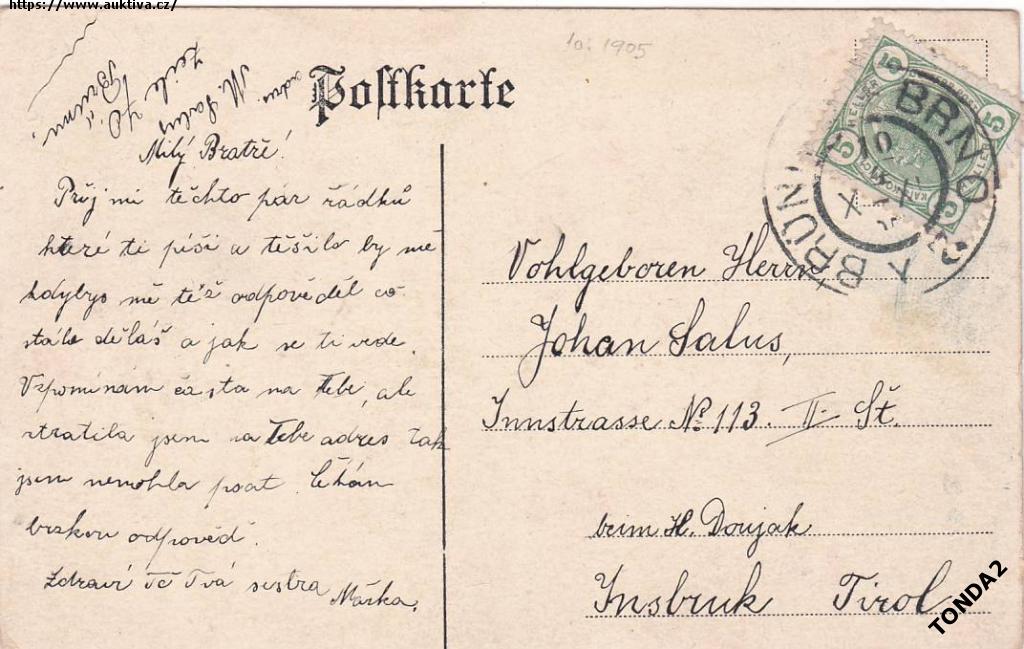 https://www.auktiva.cz/
10. 1905
Postkarte
adr. M. Salus
Zeile
Brünn.
Milý Bratře!
Přijmi těchto pár řádků
které ti píši a těšilo by mě
kdybys mě též odpověděl co
stále děláš a jak se ti vede.
Vzpomínám často na Tebe, ale
ztratila jsem na Tebe adres tak
jsem nemohla psát. Čekám
brzkou odpověd.
Zdraví Tě Tvá sestra Mařka.
5 HELLER 5
BRNO
BRÜNN
10
X
Vohlgeboren Herrn
Johan Salus,
Innstrasse No. 113. II. Št.
beim H. Donjak
Insbruk Tirol.
TONDA2